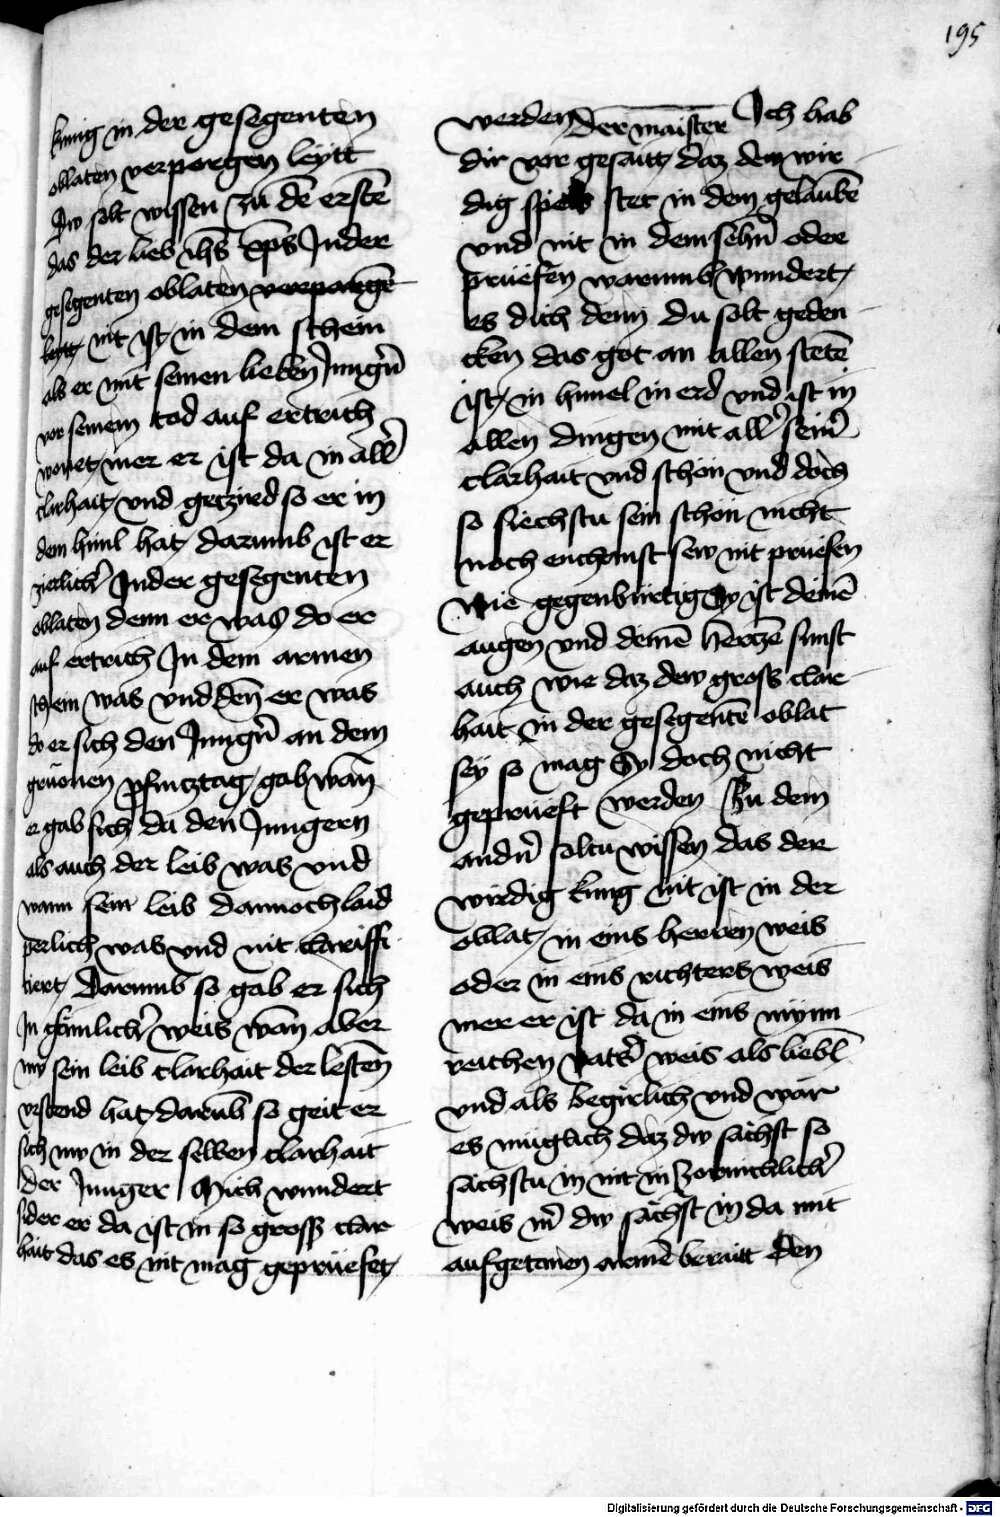 195
kunig in der gesegenten
oblaten verporgen leytt
Dw solt wissen zu dē erstē
das der lieb ihs xp̄s In der
gesegenten oblaten verporgē
leytt nit ist in dem schein
als er mit seinen lieben Jungr̄n
vor seinem tod auf ertrich
wonet mer er ist da in all'
clarhait vnd geczird so er in
dem himl hat darumb ist er
zierlich' In der gesegenten
oblaten denn er was do er
auf ertrich In dem armen
schein was vnd den er was
do er sich den Jungr̄n an dem
pfincztag gab wan̄
er gab sich da den Jungern
als auch der leib was vnd
wann sein leib dannoch laid
perlich was vnd nit clariffi
ciert Darumb so gab er sich
In weis wan̄ aber
nw sein leib clarhait der lestē
vrstend hat darūb so geit er
sich nw in der selben clarhait
der Junger Mich wundert
sider er da ist in so gross clar
hait das es nit mag geprüefet
werden Der maister Ich hab
dir vor gesaitt daz dew wir
dig speis stet in dem gelaubē
vnd nit in dem sehn̄ oder
prüefen warumb wundert
es dich denn du solt geden
cken das got an allen stetē
ist in himel in erd vnd ist in
allen dingen mit all' sein'
clarhait vnd schön vnd doch
so siechstu sein schön nicht
noch enchanst sew nit prüefen
Wie gegenbürtig Sy ist deinē
augen vnd deinē herczē sunst
auch wie daz dew gross clar
hait in der gesegentē oblat
sey so mag Sy doch nicht
geprüeft werden Zu dem
andn̄ soltu wissen das der
wirdig kunig nit ist in der
oblat in eins herren weis
oder in eins richters weis
mer er ist da in eins mynn
reichen vat's weis als liebl
vnd als begirlich vnd wär
es müglich daz dw sächst so
sächstu in nit in zornichlich'
weis nr̄ dw sächst in da mit
aufgetanen armē berait Den
Digitalisierung gefördert durch die Deutsche Forschungsgemeinschaft - DFG